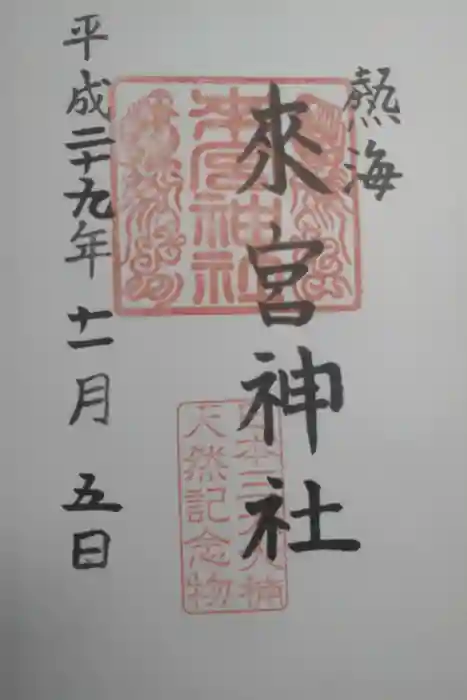 熱海
來宮神社
平成二十九年十一月五日
來宮神社
日本三大大楠
天然記念物